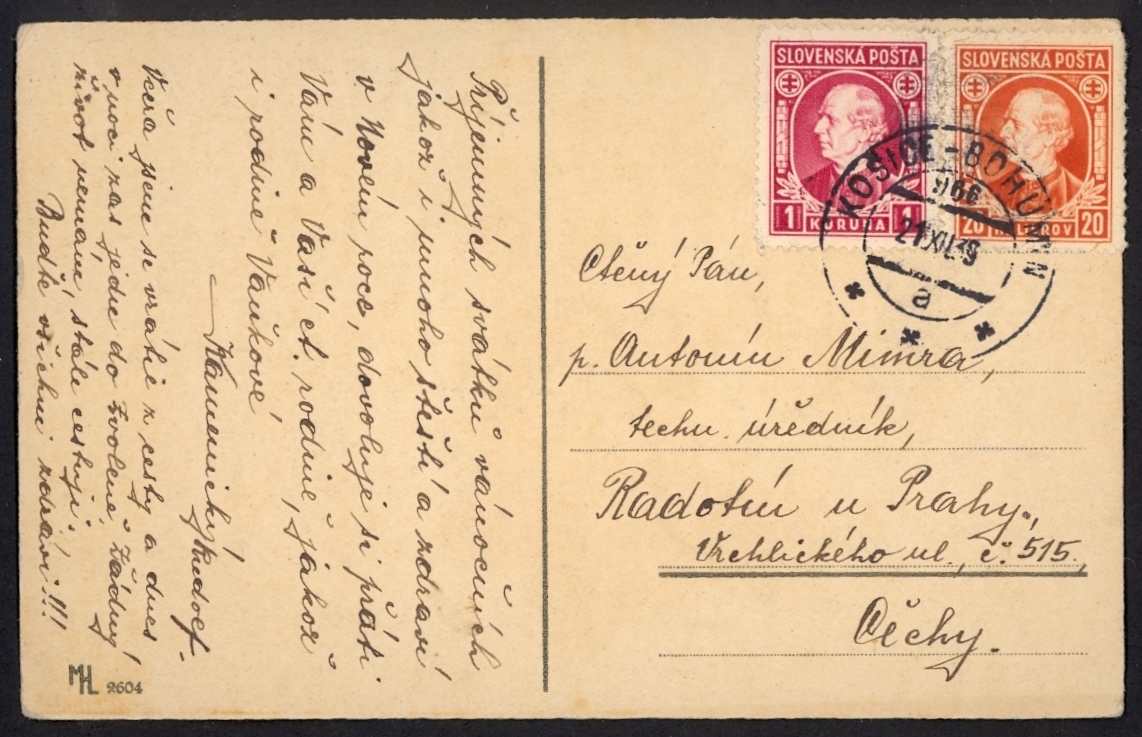 Příjemných svátků vánočních
jakož i mnoho štěstí a zdraví
v Novém roce, dovoluje si přáti
Vám a Vaší ct. rodině, jakož
i rodině Vaňkové
Kamenický Rudolf.
Včera jsme se vrátil z cesty a dnes
v noci zas jedu do Zvolene. Žádný
život nemáme, stále cestuji.
Buďte všichni zdrávi!!!
MHL 2604
SLOVENSKÁ POŠTA
1 KORUNA 1
SLOVENSKÁ POŠTA
20
KOŠICE-BOHUMÍN
966
21.XII.39
a
Ctěný Pán,
p. Antonín Mimra,
techn. úředník,
Radotín u Prahy,
Vrchlického ul., č. 515.
Čěchy.